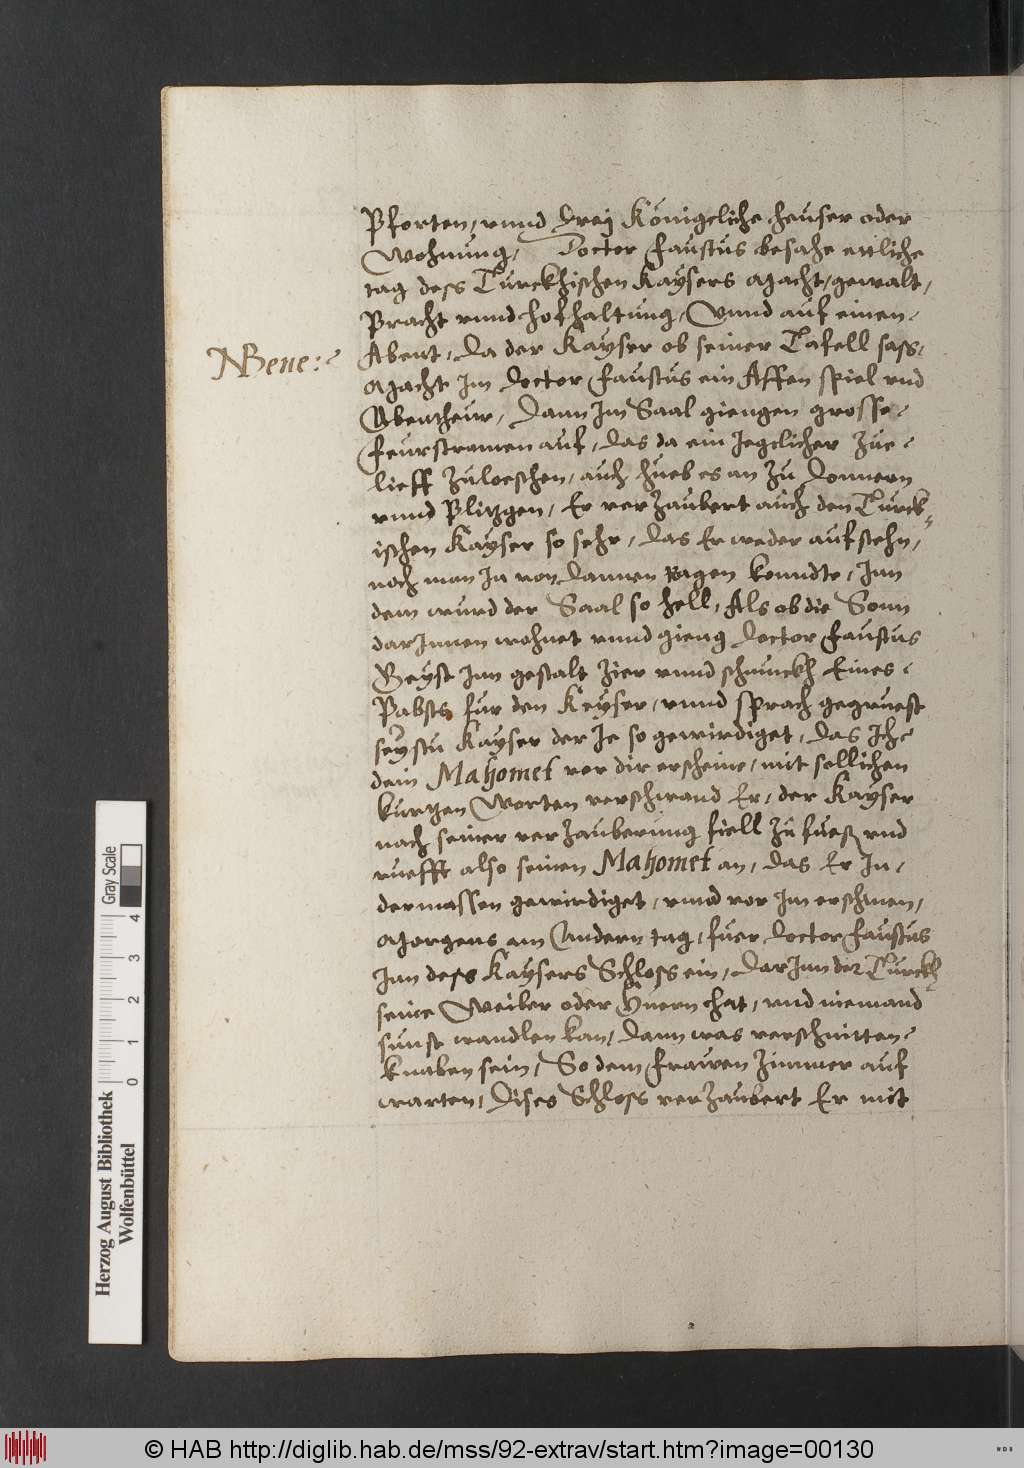 Pforten, vnnd Drej Königcliche heuser oder
Wohnung, Doctor Faustus besahe ettliche
tag dess Turckhischen Kaysers Macht, gewalt,
Pracht vnnd hofhaltung, Vnnd auf einen
NBene:
Abent, Da der Kayser ob seiner Tafell sass,
Macht Im Doctor Faustus ein Affen spiel vnd
Abentheur, Dann Im Saal giengen grosse
feurstramen auf, das da ein Jegclicher zue
lieff zuloeschen, auch hueb es an zu Donnern
vnnd Plitzgen, Er verzaubert auch den Turck-
ischen Kayser so sehr, das Er weder aufstehn,
noch man In von Dannen tragen kenndte, Inn
dem wurd der Saal so hell, Als ob die Sonn
darInnen wohnet vnnd gieng Doctor Faustus
Geyst Inn gestalt Zier vnnd schmuckh Eines
Pabsts für den Keyser, vnnd sprach gegruest
seystu Kayser der Je so gewirdiget, das Ich
dein Mahomet vor dir erscheine, mit sollichen
kurtzen Worten verschwand Er, der Kayser
nach seiner verzauberung fiell zu fueß vnd
ruefft also seinen Mahomet an, das Er In
dermassen gewirdiget, vnnd vor Im erschinen,
Morgens am Andern tag, fuer Doctor Faustus
Inn dess Kaysers Schloss ein, DarInn der Turckh
seine Weiber oder Huern hat, vnd niemand
sunst wandlen kan, Dann was verschnitten
knaben sein, So dem frawen Zimmer auf
warten, Dises Schloss verzaubert Er mit
Herzog August Bibliothek
Wolfenbüttel
Gray Scale
0 1 2 3 4
© HAB http://diglib.hab.de/mss/92-extrav/start.htm?image=00130
WDB